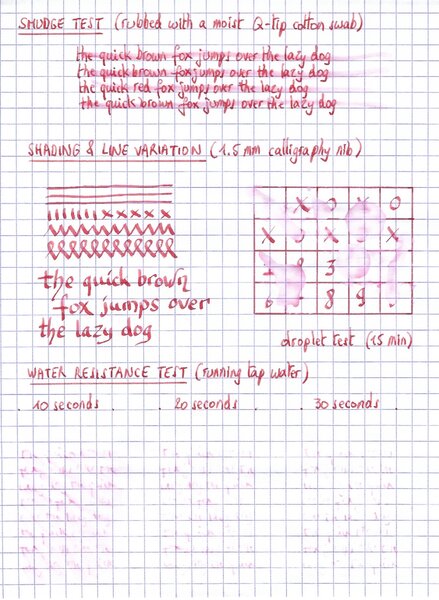 SMUDGE TEST (rubbed with a moist Q-tip cotton swab)
the quick brown fox jumps over the lazy dog
the quick brown fox jumps over the lazy dog
the quick red fox jumps over the lazy dog
the quick brown fox jumps over the lazy dog
SHADING & LINE VARIATION (1.5 mm calligraphy nib)
X O X O
X X X
3
6 8 9
the quick brown
fox jumps over
the lazy dog
droplet test (15 min)
WATER RESISTANCE TEST (running tap water)
10 seconds . 20 seconds . 30 seconds